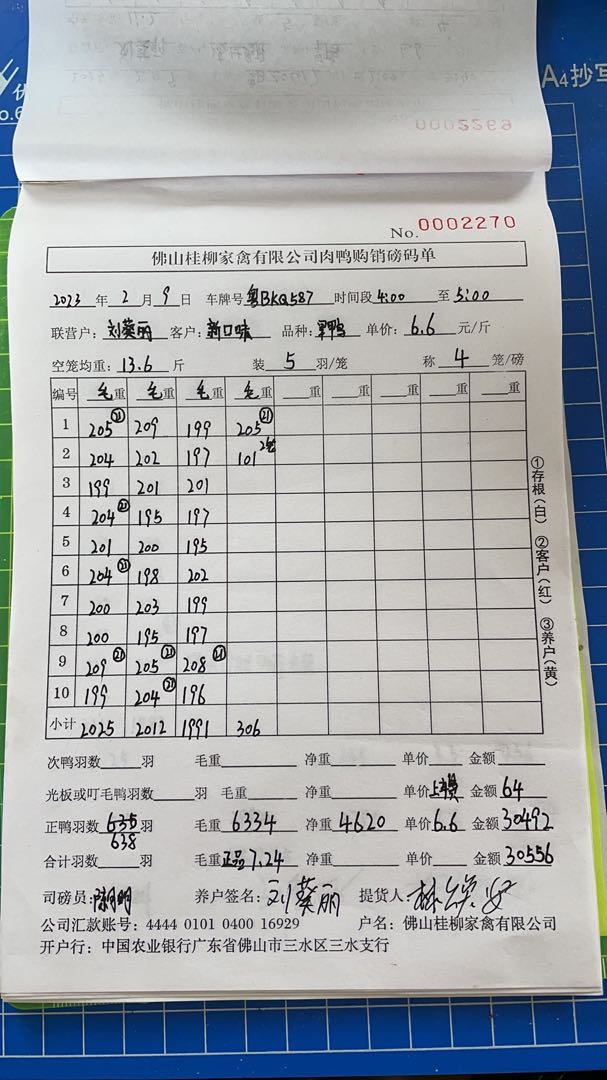 A4抄写
0002269
No. 0002270
佛山桂柳家禽有限公司肉鸭购销磅码单
2023 年 2 月 9 日 车牌号 粤BKQ587 时间段 4:00 至 5:00
联营户: 刘葵丽 客户: 新口味 品种: 单价: 6.6 元/斤
空笼均重: 13.6 斤 装 5 羽/笼 称 4 笼/磅
编号 毛重 毛重 毛重 毛重 重 重 重 重 重
1 205 21 209 199 205 21
2 204 202 197 101 2笼
3 199 201 201
4 204 21 195 197
5 201 200 195
6 204 21 198 202
7 200 203 199
8 200 195 197
9 209 21 205 21 208 21
10 199 204 21 196
小计 2025 2012 1991 306
①存根(白) ②客户(红) ③养户(黄)
次鸭羽数 羽 毛重 净重 单价 金额
光板或叮毛鸭羽数 羽 毛重 净重 单价 金额 64
正鸭羽数 635 羽 毛重 6334 净重 4620 单价 6.6 金额 30492
638
合计羽数 羽 毛重 正品7.24 净重 单价 金额 30556
司磅员: 养户签名: 刘葵丽 提货人:
公司汇款账号: 4444 0101 0400 16929 户名: 佛山桂柳家禽有限公司
开户行: 中国农业银行广东省佛山市三水区三水支行